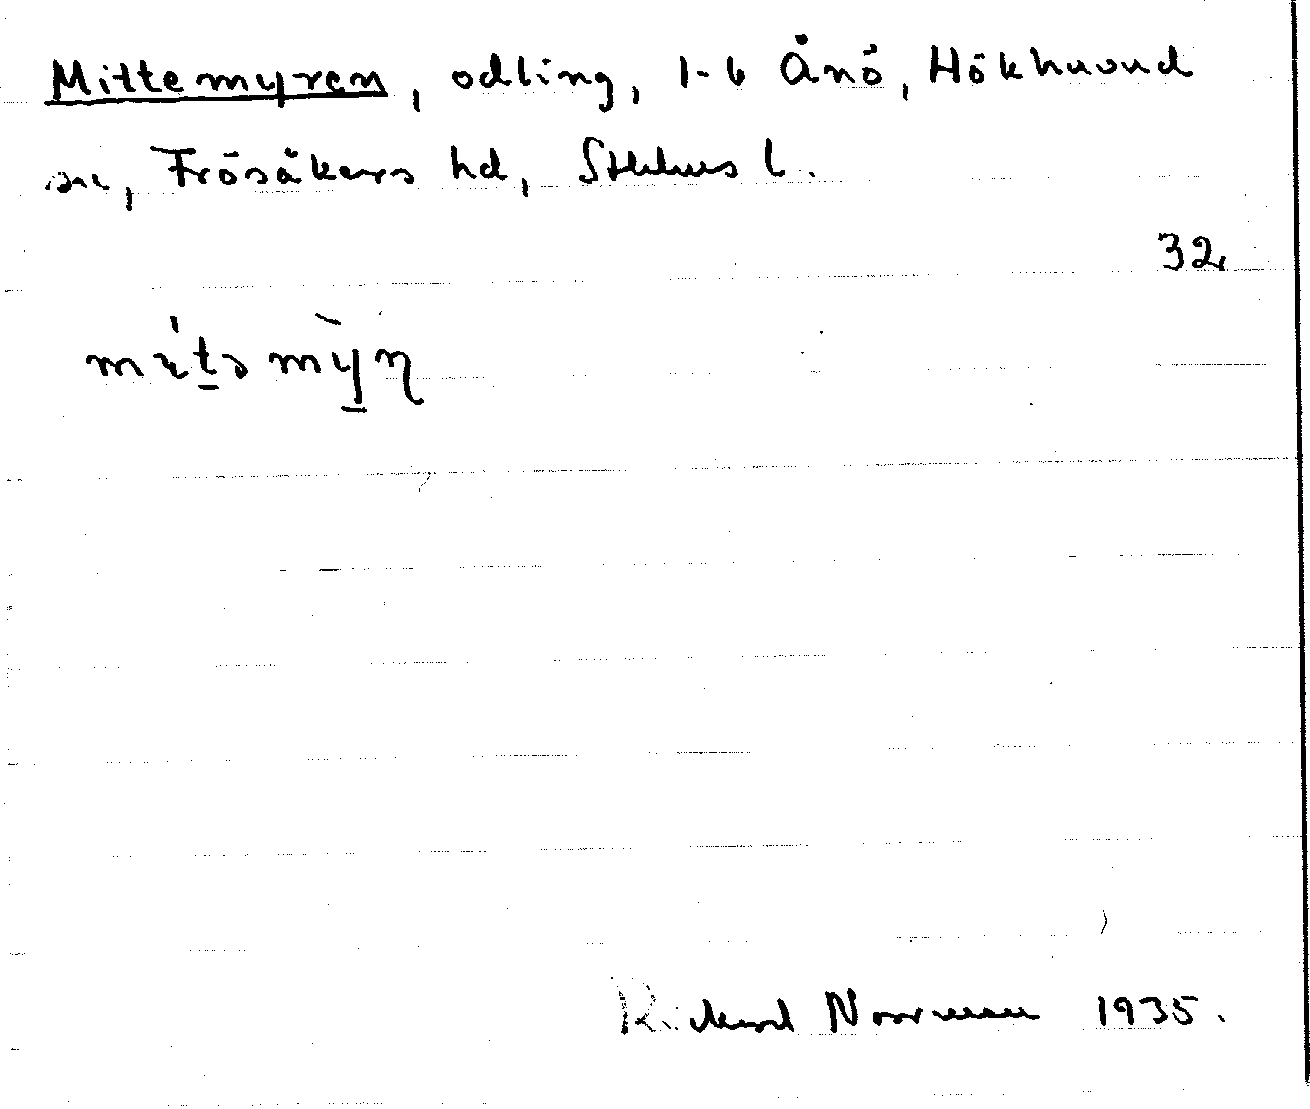 Mittemyren, odling, 1-6 Ånö, Hökhuvud
sn, Frösåkers hd, Sthlms l.
32
mìtə mỳn
Rickard Norrman 1935.